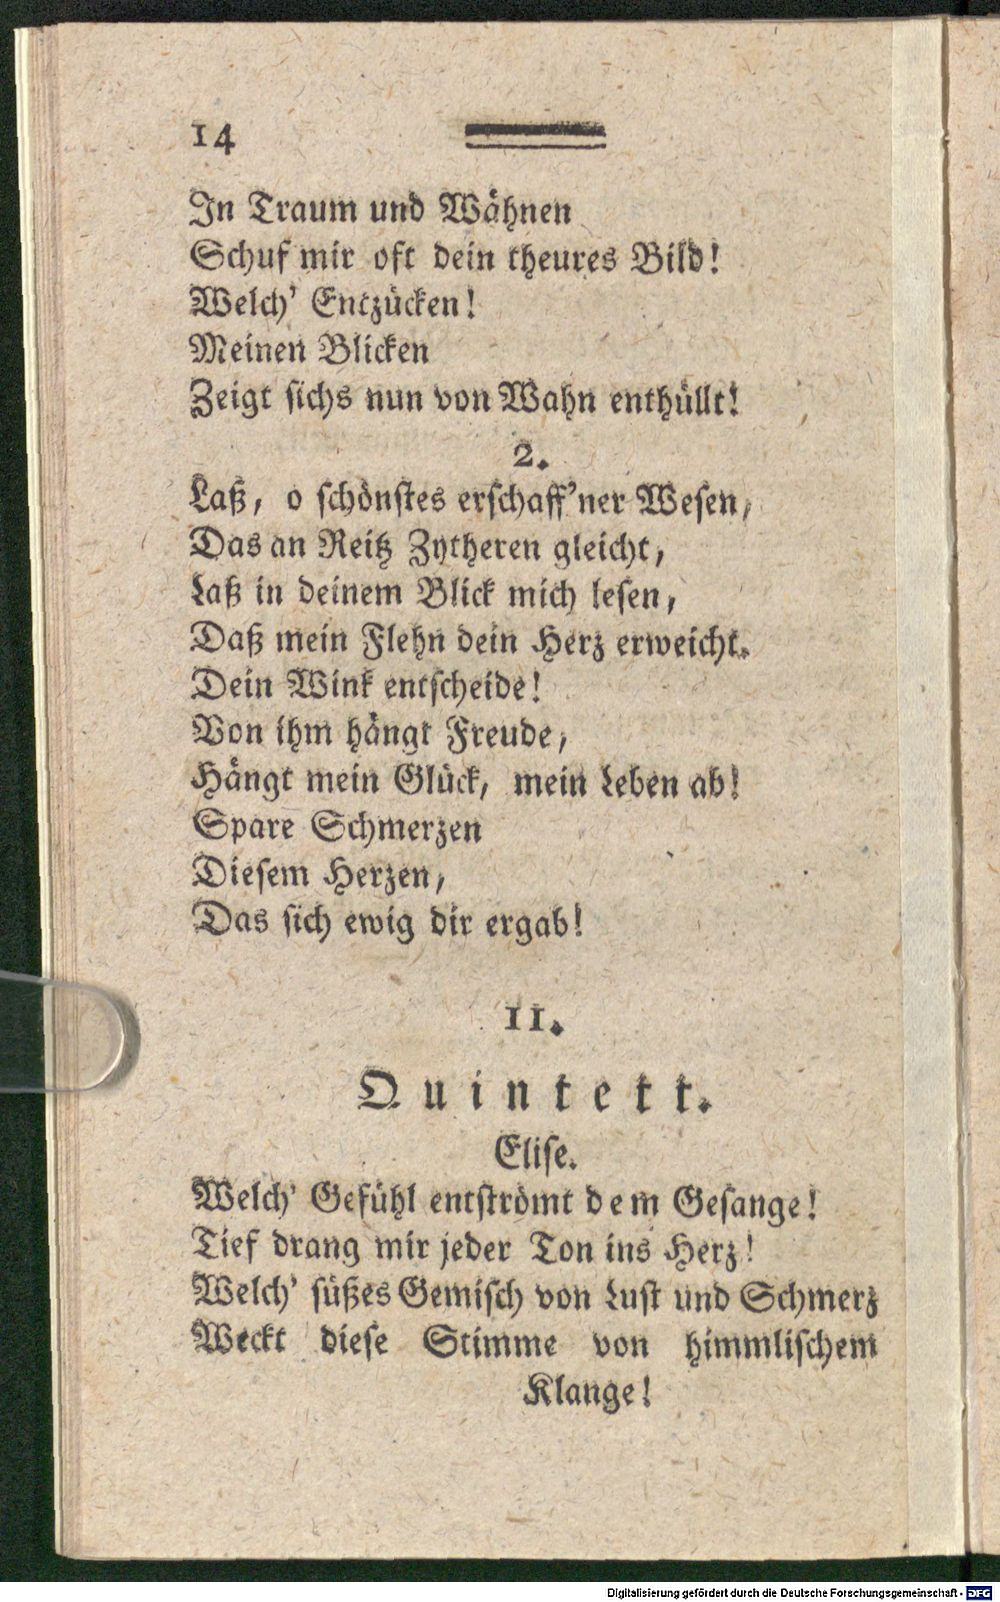 14
In Traum und Wähnen
Schuf mir oft dein theures Bild!
Welch' Entzücken!
Meinen Blicken
Zeigt sichs nun von Wahn enthüllt!
2.
Laß, o schönstes erschaff'ner Wesen,
Das an Reitz Zytheren gleicht,
Laß in deinem Blick mich lesen,
Daß mein Flehn dein Herz erweicht.
Dein Wink entscheide!
Von ihm hängt Freude,
Hängt mein Glück, mein Leben ab!
Spare Schmerzen
Diesem Herzen,
Das sich ewig dir ergab!
11.
Quintett.
Elise.
Welch' Gefühl entströmt dem Gesange!
Tief drang mir jeder Ton ins Herz!
Welch' süßes Gemisch von Lust und Schmerz
Weckt diese Stimme von himmlischem
Klange!
Digitalisierung gefördert durch die Deutsche Forschungsgemeinschaft - DFG